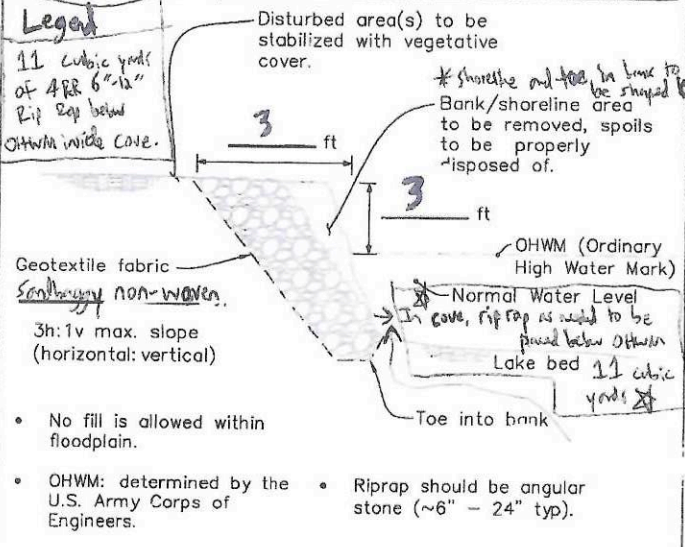 Legend
11 cubic yards
of 4RR 6"-12"
Rip Rap below
OHWM inside cove.
Disturbed area(s) to be
stabilized with vegetative
cover.
* shoreline and toe in bank to
be shaped
Bank/shoreline area
to be removed, spoils
to be properly
disposed of.
3 ft
3 ft
OHWM (Ordinary
High Water Mark)
Geotextile fabric
non-woven.
3h:1v max. slope
(horizontal: vertical)
Normal Water Level
In cove, riprap as need to be
placed below OHWM
Lake bed 11 cubic
yards
Toe into bank
• No fill is allowed within
floodplain.
• OHWM: determined by the
U.S. Army Corps of
Engineers.
• Riprap should be angular
stone (~6" – 24" typ).